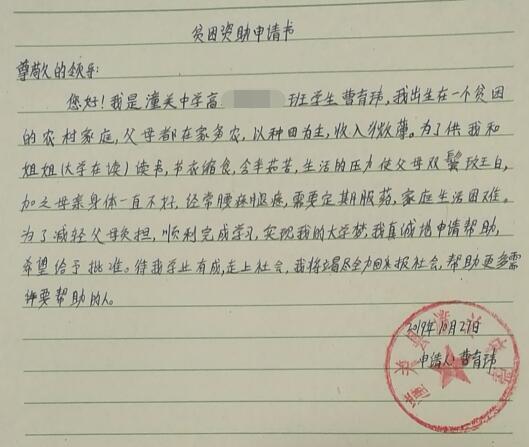 贫困资助申请书
尊敬的领导:
您好!我是潼关中学高 班学生曹育玮,我出生在一个贫困
的农村家庭,父母都在家务农,以种田为主,收入微薄。为了供我和
姐姐(大学在读)读书,节衣缩食,含辛茹苦,生活的压力使父母双鬓斑白,
加之母亲身体一直不好,经常腰疼腿疼,需要定期服药,家庭生活困难。
为了减轻父母负担,顺利完成学习,实现我的大学梦,我真诚地申请帮助,
希望给予批准。待我学业有成,走上社会,我将竭尽全力回来报社会,帮助更多需
许要帮助的人。
2019年10月27日
申请人:曹育玮